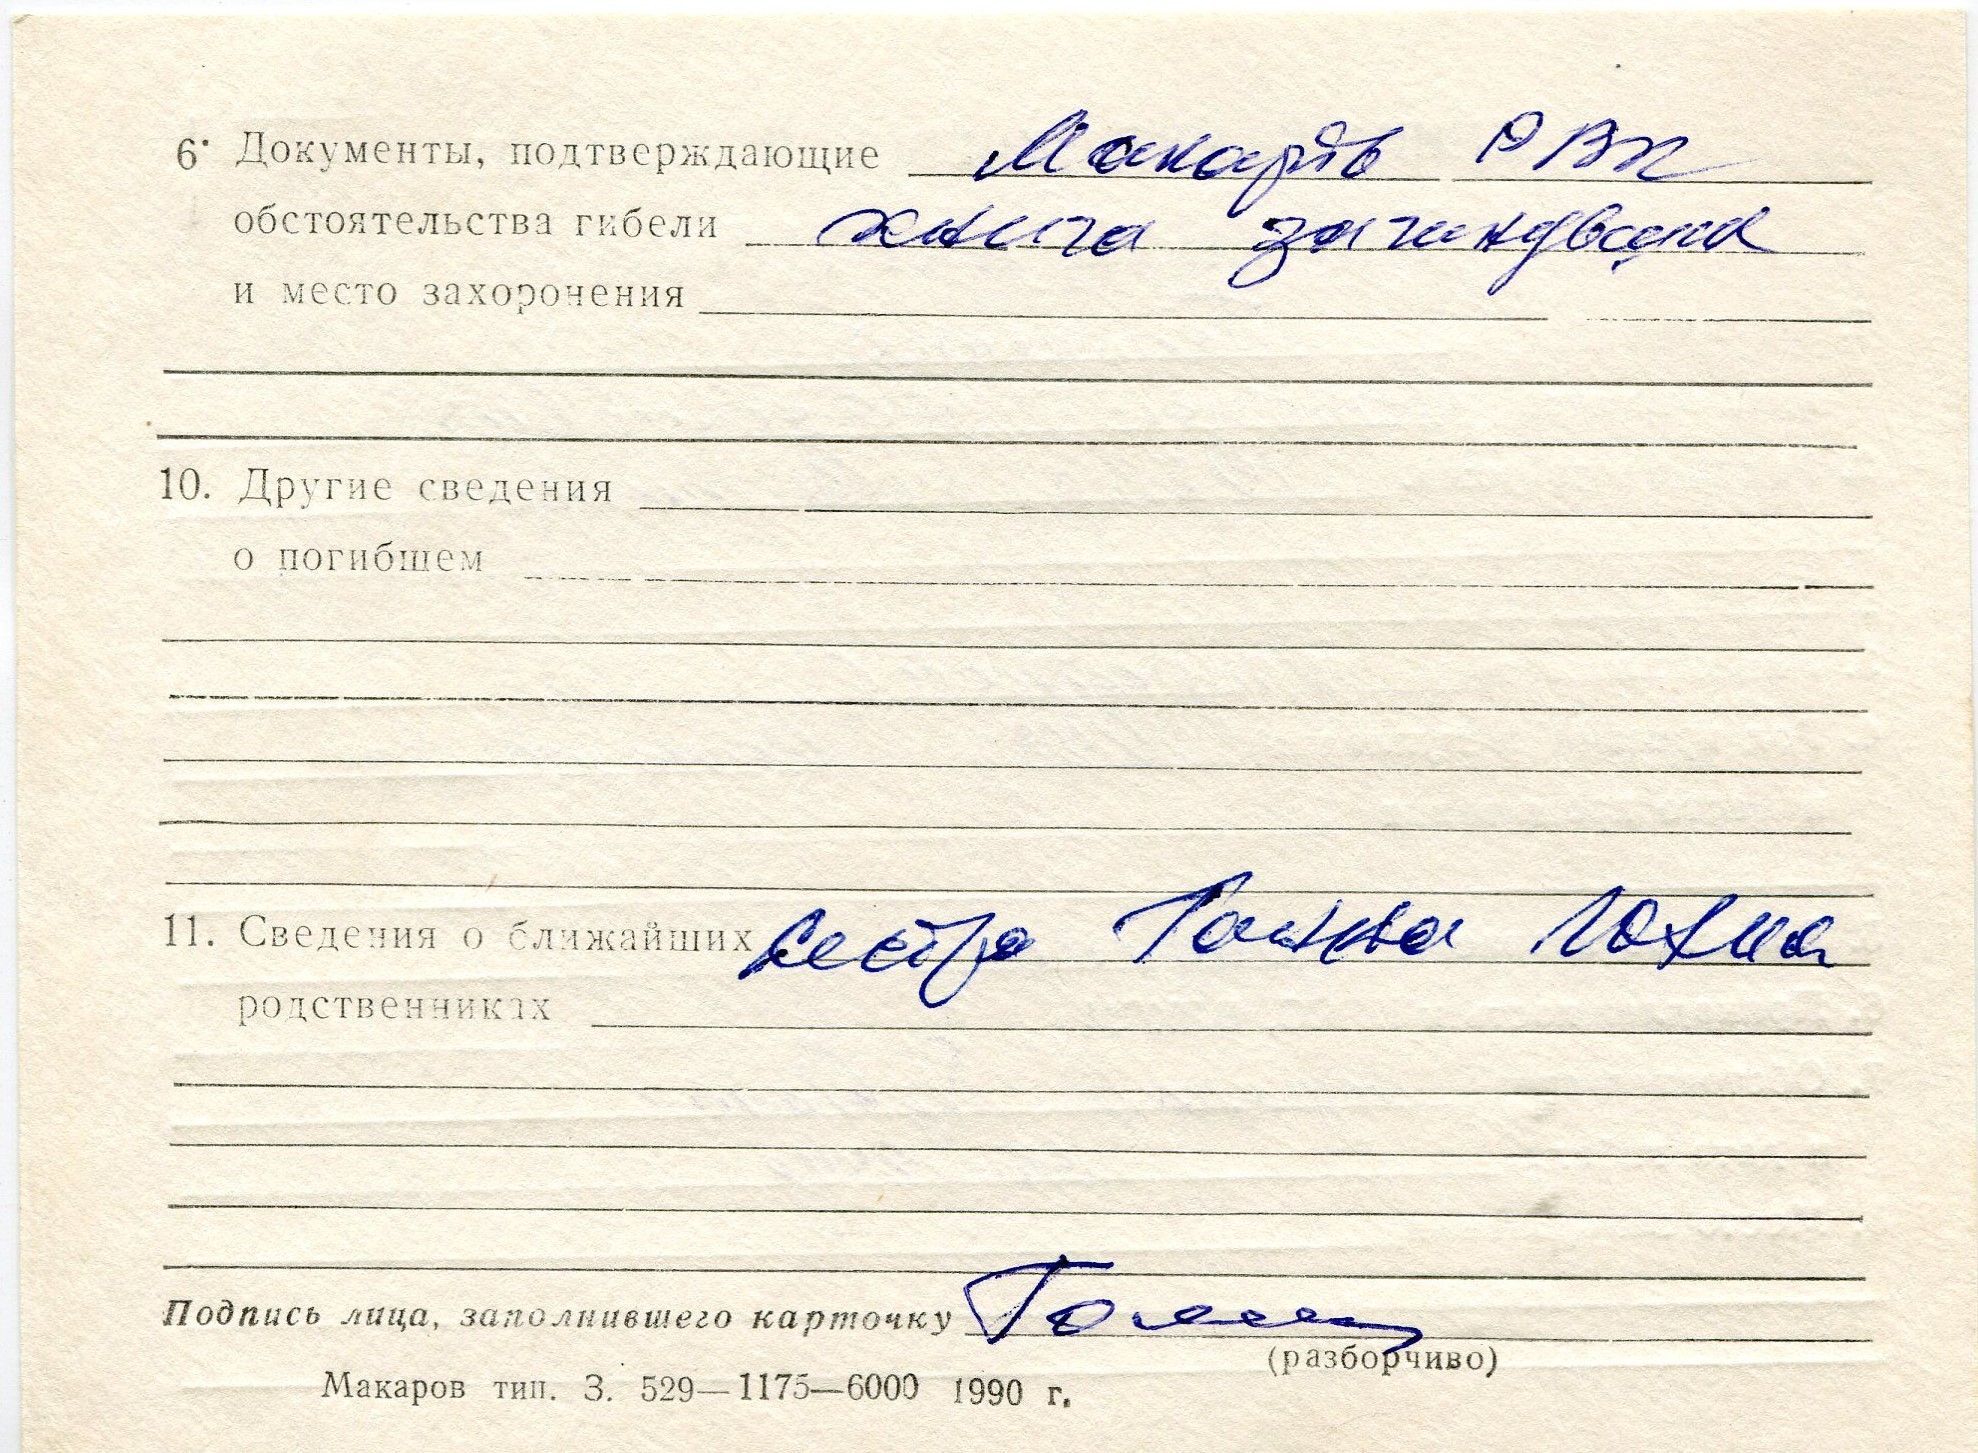 6. Документы, подтверждающие Макарів РВК
обстоятельства гибели книга
и место захоронения
10. Другие сведения
о погибшем
11. Сведения о ближайших сестра Ганна Юхна
родственниках
Подпись лица, заполнившего карточку
(разборчиво)
Макаров тип. З. 529—1175—6000 1990 г.